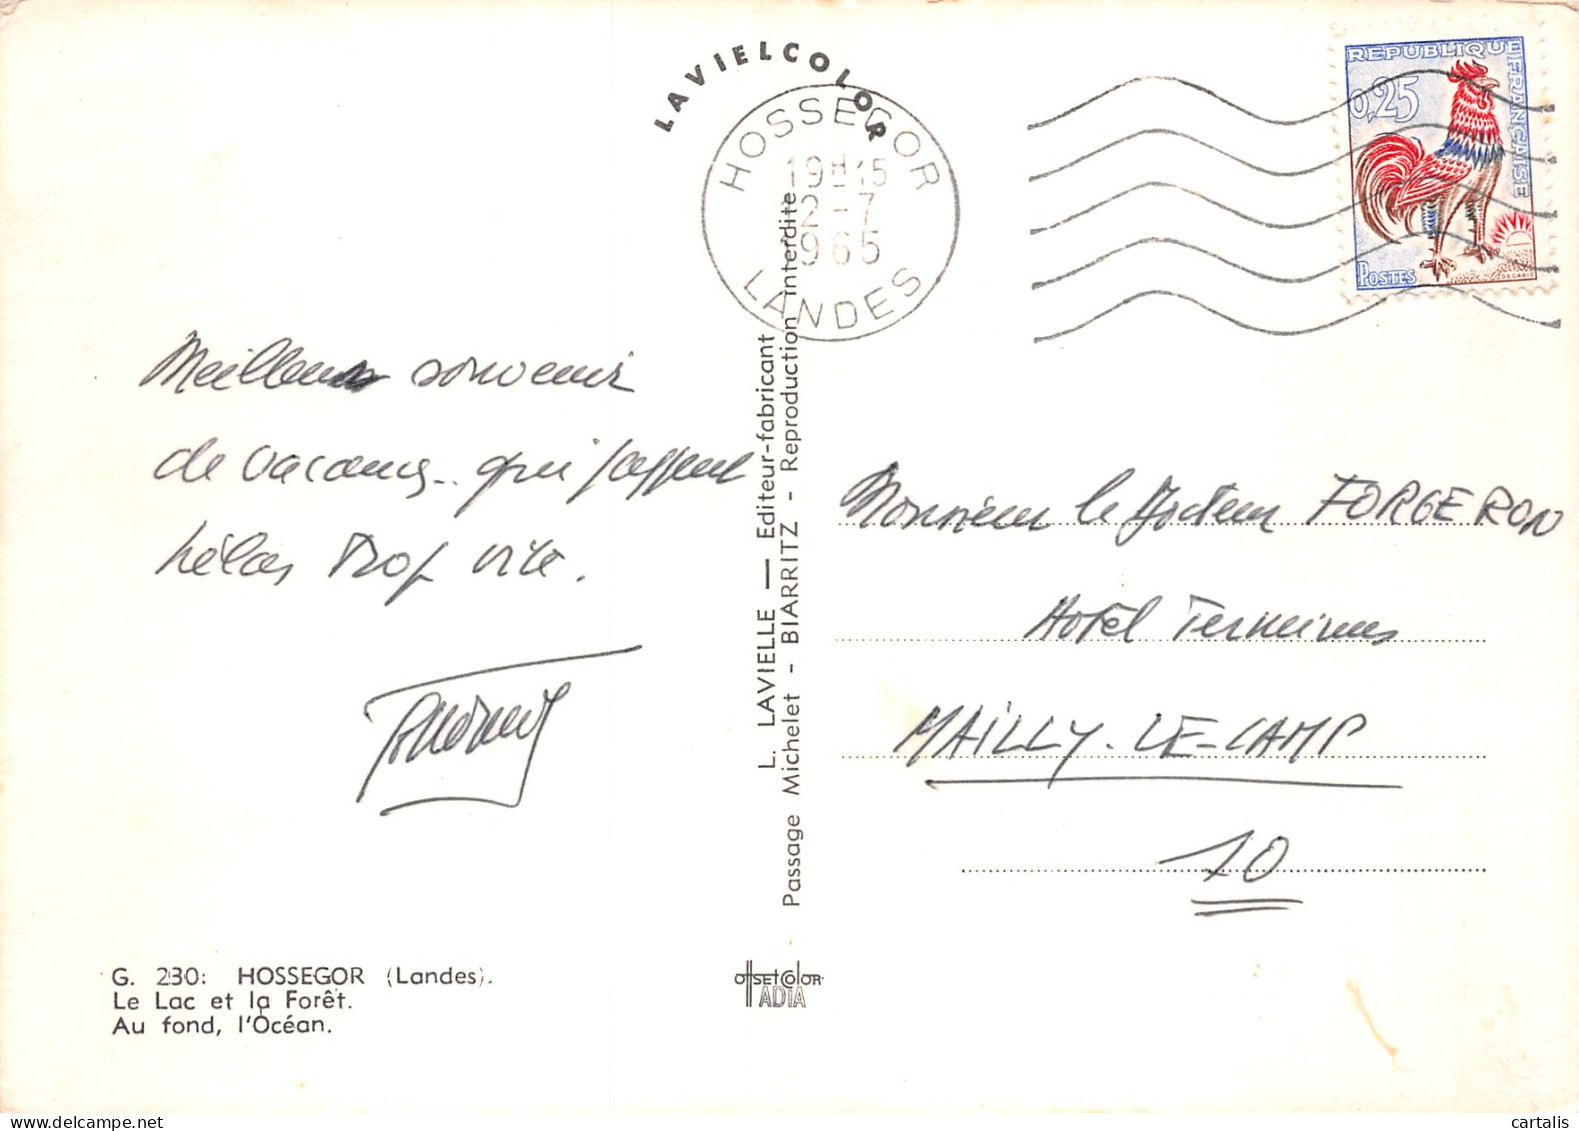 LAVIELCOLOR
HOSSEGOR
19H15
2-7
1965
LANDES
REPUBLIQUE FRANÇAISE
0,25
POSTES
DECARIS
Meilleur souvenir
de vacances.. qui passent
hélas trop vite.
L. LAVIELLE — Editeur-fabricant
Passage Michelet - BIARRITZ - Reproduction interdite
Monsieur le Docteur FORGERON
Hotel Terminus
MAILLY-LE-CAMP
10
G. 230: HOSSEGOR (Landes).
Le Lac et la Forêt.
Au fond, l'Océan.
OffSEtColOR
ADIA
cartalis